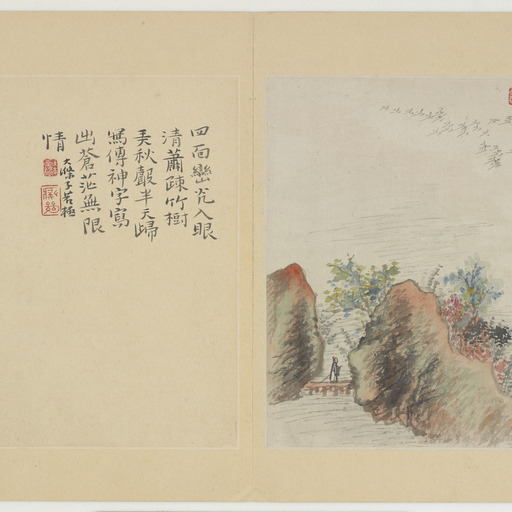 四面巒光入眼
清蕭疎竹樹
弄秋聲半天歸
鴈傳神字寫
出蒼茫無限
情
大滌子若極